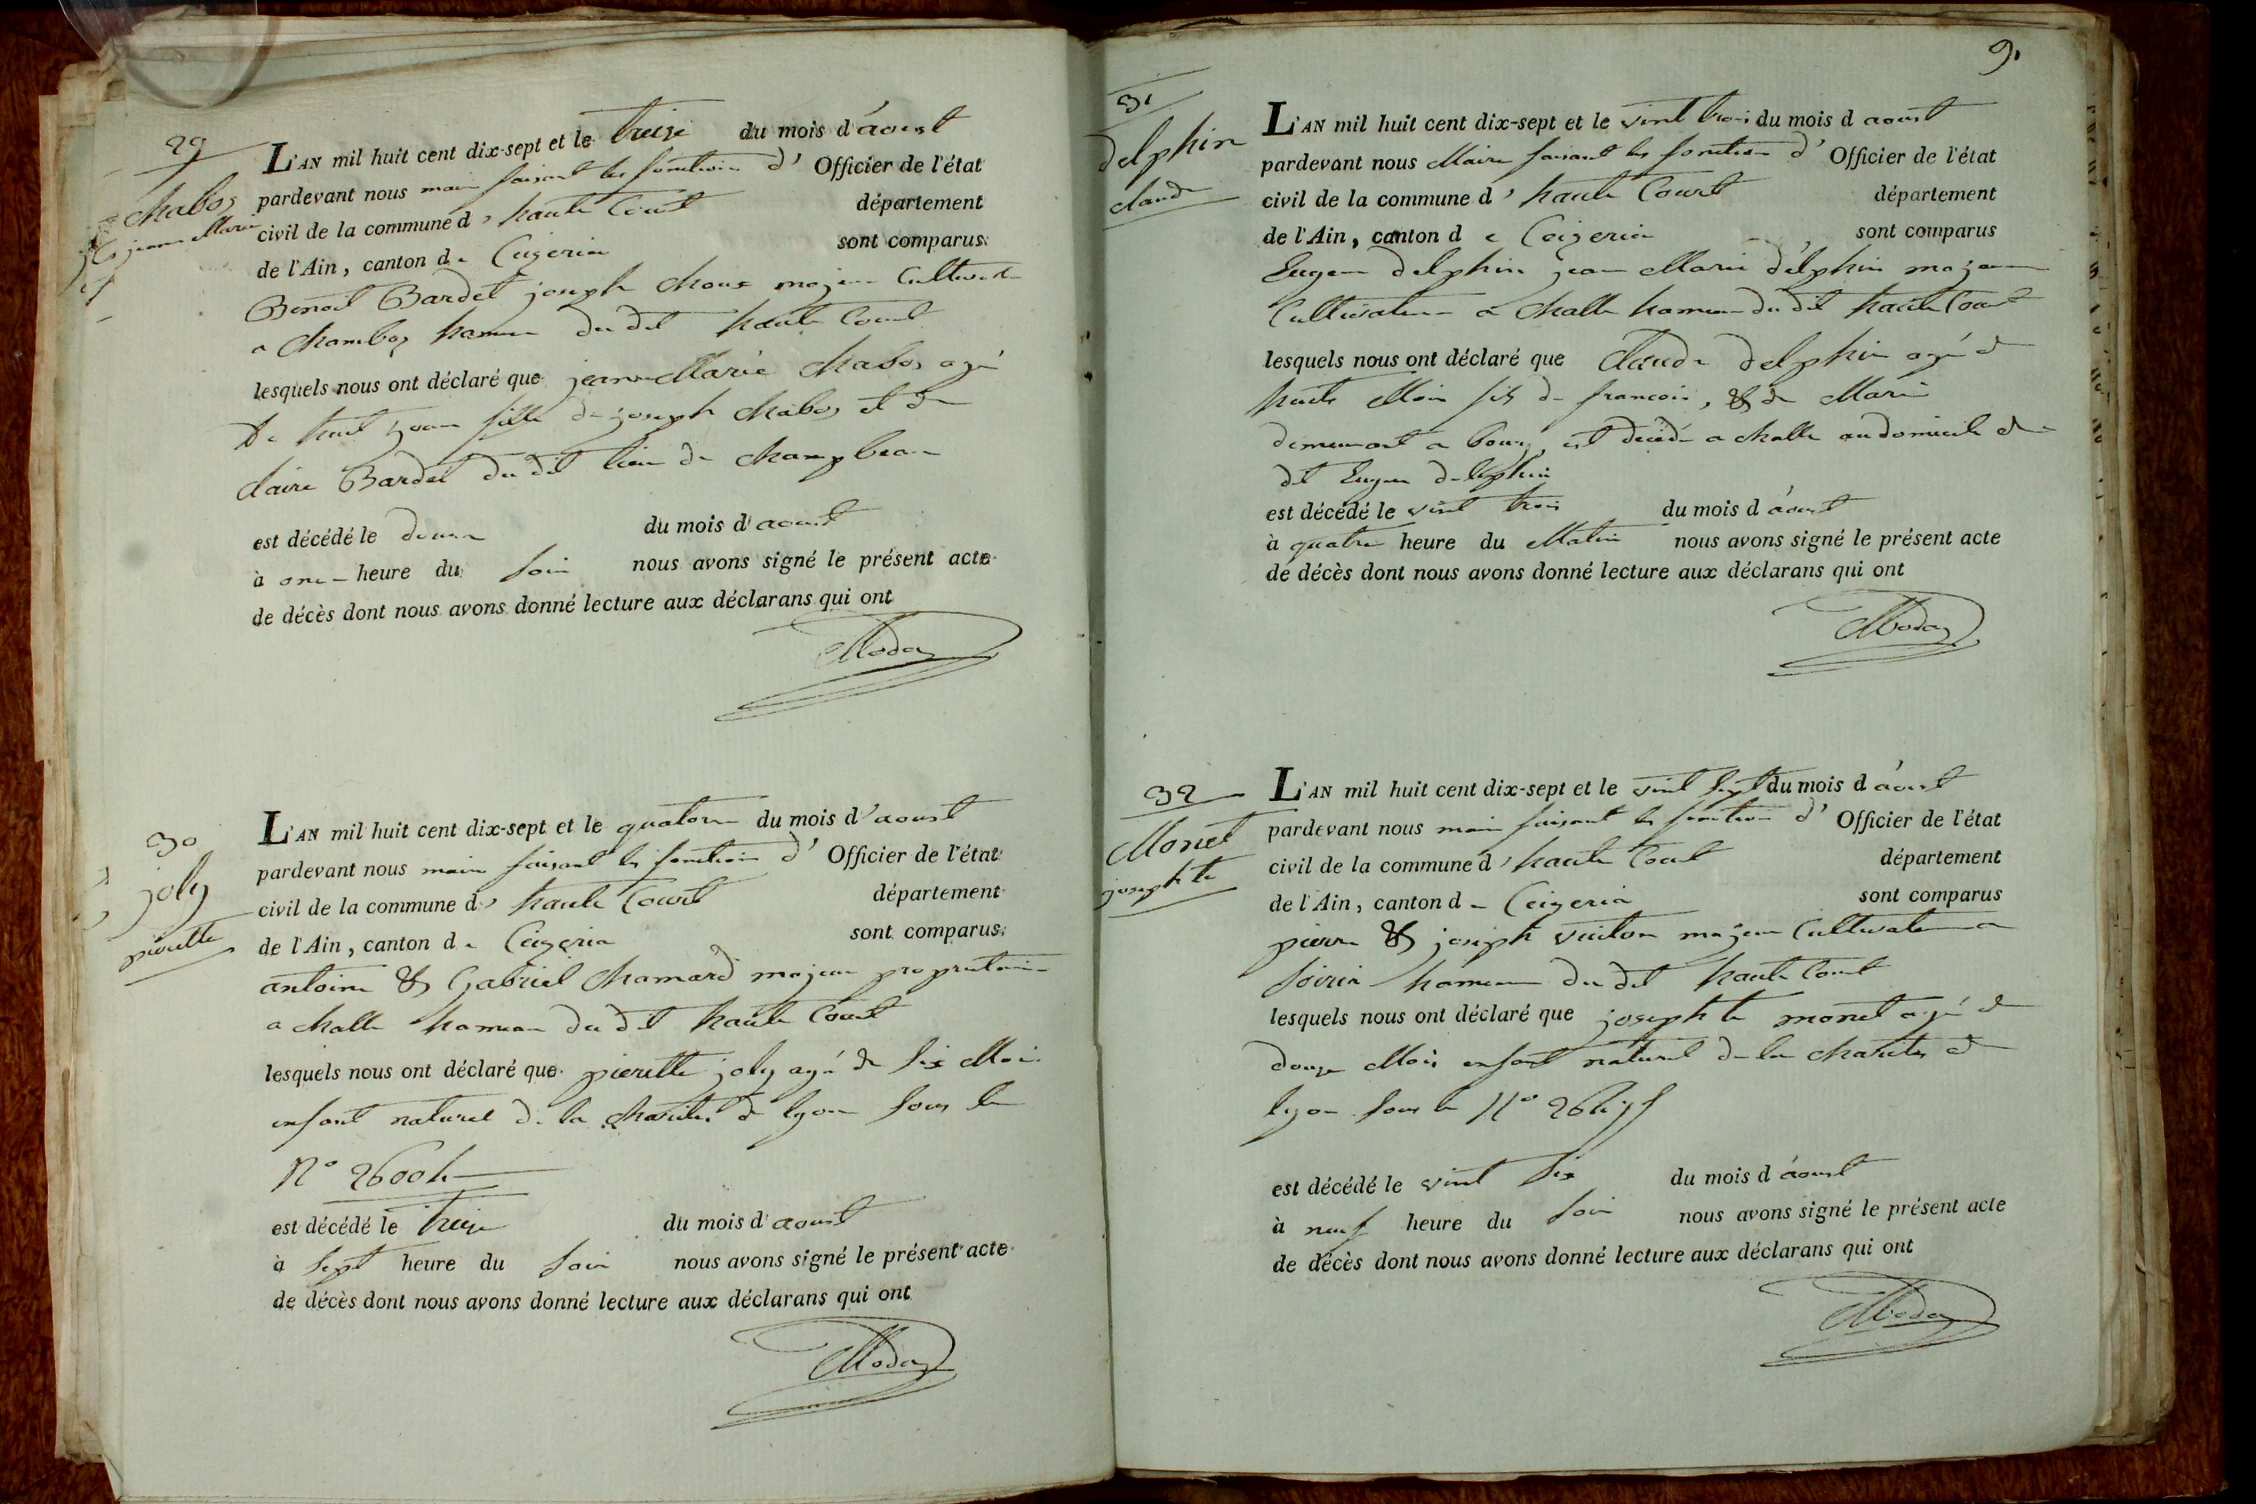 29
Chabod
jeanne Marie
L'AN mil huit cent dix-sept et le treize du mois d'aoust
pardevant nous maire faisant les fonction d' Officier de l'état
civil de la commune d' haute Court département
de l'Ain, canton de Ceizeria sont comparus
Benoit Bardet joseph majeur Cultivateur
a hameau du dit haute Court
lesquels nous ont déclaré que jeanne Marie Chabod agé
de huit jour fille de joseph Chabod et de
claire Bardet du dit lieu de
est décédé le douze du mois d'aoust
à onze heure du soir nous avons signé le présent acte
de décès dont nous avons donné lecture aux déclarans qui ont
30
joly
pierette
L'AN mil huit cent dix-sept et le quatorze du mois d'aoust
pardevant nous maire faisant les fonction d' Officier de l'état
civil de la commune d' haute Court département
de l'Ain, canton de Ceizeria sont comparus
antoine & Gabriel Chamard majeur proprietaire
a Challe hameau du dit haute Court
lesquels nous ont déclaré que pierette joly agé de six Mois
enfant naturel de la charité de lyon sous le
N° 26004
est décédé le treize du mois d'aoust
à sept heure du soir nous avons signé le présent acte
de décès dont nous avons donné lecture aux déclarans qui ont
9.
31
delphin
claude
L'AN mil huit cent dix-sept et le vint trois du mois d aoust
pardevant nous Maire faisant les fonction d' Officier de l'état
civil de la commune d' haute Court département
de l'Ain, canton d e Ceizeria sont comparus
Eugene delphin jean Marie delphin majeur
Cultivateur a Challe hameau du dit haute Court
lesquels nous ont déclaré que Claude delphin agé de
huit Mois fils de francois, & de Marie
demeurant a bourg est décédé a challe au domicile du
dit Eugene delphin
est décédé le vint trois du mois d aoust
à quatre heure du Matin nous avons signé le présent acte
de décès dont nous avons donné lecture aux déclarans qui ont
32
Monet
josephte
L'AN mil huit cent dix-sept et le vint sept du mois d aoust
pardevant nous maire faisant les fonction d' Officier de l'état
civil de la commune d' haute Court département
de l'Ain, canton de Ceizeria sont comparus
pierre & joseph vuiton majeur Cultivateur a
hameau du dit haute Court
lesquels nous ont déclaré que josephte monet agé de
douze Mois enfant naturel de la charité de
lyon sous le N°
est décédé le vint six du mois d aoust
à neuf heure du soir nous avons signé le présent acte
de décès dont nous avons donné lecture aux déclarans qui ont